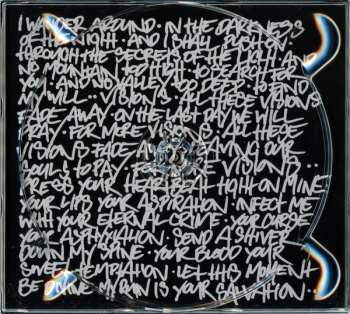 I WANDER AROUND · IN THE DARKNESS
OF THE NIGHT · AND I SHALL PUSH ON ·
THROUGH THE SECRETS OF THE LIGHT · AND
NO MOUNTAIN TOO HIGH · TO SEARCH FOR
YOU · AND NO VALLEY TOO DEEP · TO END
MY WILL · · VISIONS · ALL THESE VISIONS
FADE AWAY · ON THE LAST DAY WE WILL
PRAY · FOR MORE VISIONS · ALL THESE
VISIONS FADE AWAY · LEAVING OUR
SOULS TO PAY · VISIONS · ·
PRESS YOUR HEARTBEAT TIGHT ON MINE
YOUR LIPS YOUR ASPIRATION · INFECT ME
WITH YOUR ETERNAL CRIME · YOUR CURSE
YOUR ASPHYXIATION · SEND A SHIVER
DOWN MY SPINE · YOUR BLOOD YOUR
SWEET TEMPTATION · LET THIS MOMENT
BE DIVINE MY PAIN IS YOUR SALVATION · ·